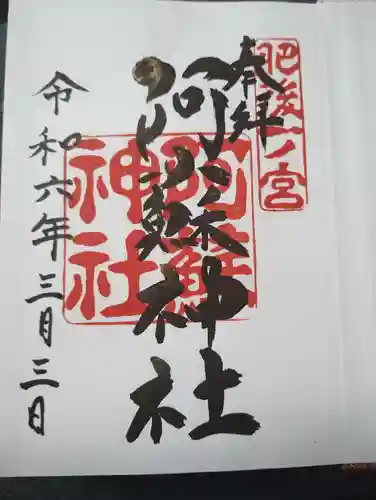 肥後一ノ宮
奉拝
阿蘇神社
阿蘇
神社
令和六年三月三日